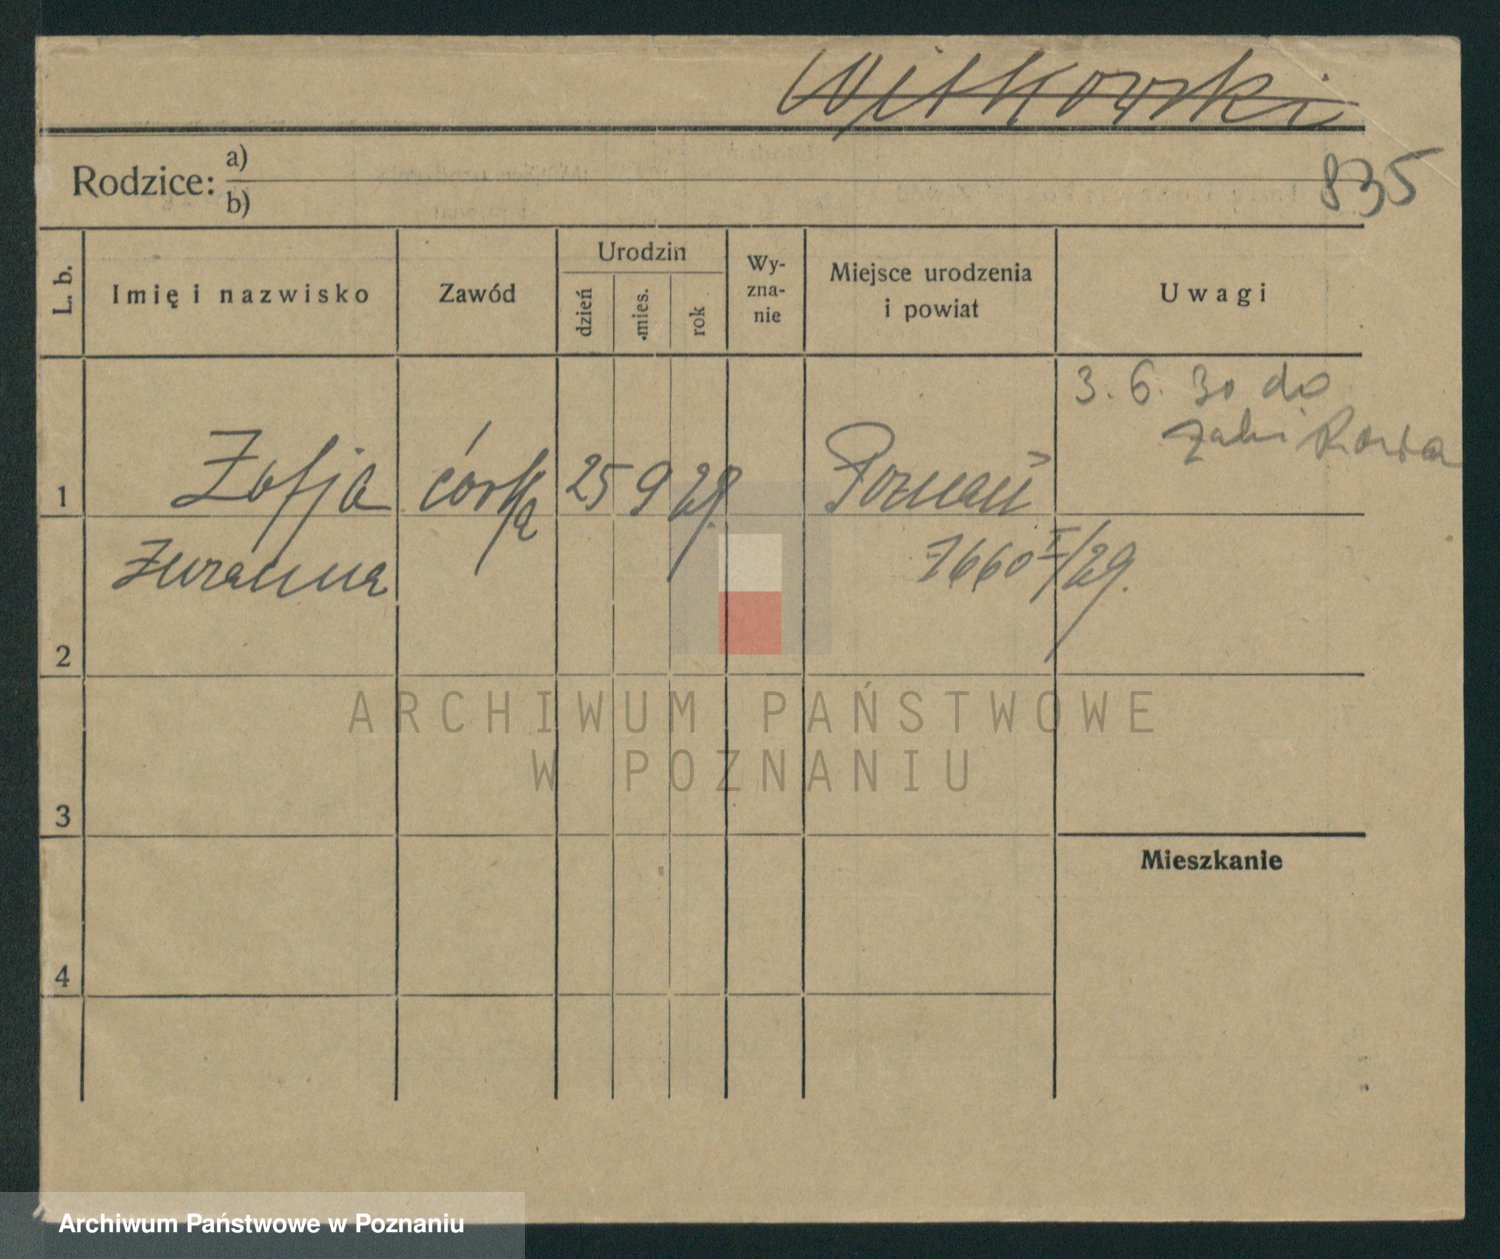 Witkowski
835
Rodzice: a)
b)
L. b.
Imię i nazwisko
Zawód
Urodzin
dzień
mies.
rok
Wy-
zna-
nie
Miejsce urodzenia
i powiat
Uwagi
3. 6. 30 do
Żabikowa
1
Zofja
córka
25
9
29.
Poznań
Zuzanna
7660 I/29.
2
ARCHIWUM PAŃSTWOWE
W POZNANIU
3
Mieszkanie
4
Archiwum Państwowe w Poznaniu